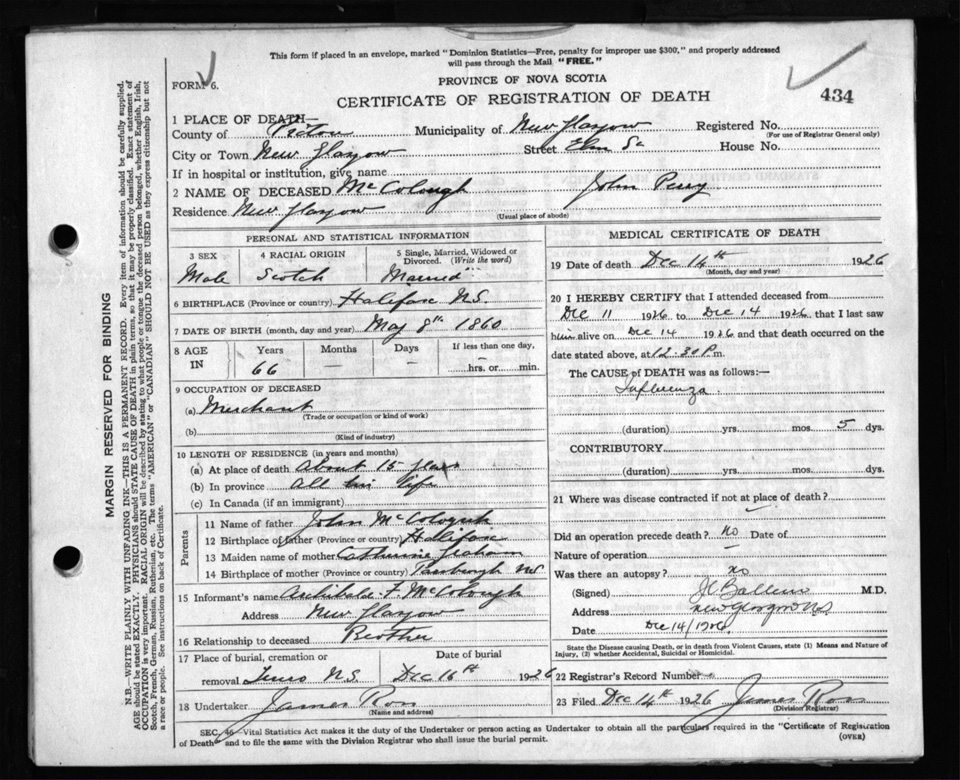 This form if placed in an envelope, marked "Dominion Statistics—Free, penalty for improper use $300," and properly addressed
will pass through the Mail "FREE."
FORM 6.
PROVINCE OF NOVA SCOTIA
CERTIFICATE OF REGISTRATION OF DEATH
434
1 PLACE OF DEATH—
County of Pictou Municipality of New Glasgow Registered No.
(For use of Registrar General only)
City or Town New Glasgow Street Elm St House No.
If in hospital or institution, give name
2 NAME OF DECEASED McColough John Perry
Residence New Glasgow
(Usual place of abode)
PERSONAL AND STATISTICAL INFORMATION
3 SEX 4 RACIAL ORIGIN 5 Single, Married, Widowed or
Divorced. (Write the word)
Male Scotch Married
6 BIRTHPLACE (Province or country) Halifax N.S.
7 DATE OF BIRTH (month, day and year) May 8th 1860
8 AGE IN Years Months Days If less than one day,
66 — — — hrs. or min.
9 OCCUPATION OF DECEASED
(a) Merchant
(Trade or occupation or kind of work)
(b)
(Kind of industry)
10 LENGTH OF RESIDENCE (in years and months)
(a) At place of death About 15 years
(b) In province All his life
(c) In Canada (if an immigrant)
Parents
11 Name of father John McColough
12 Birthplace of father (Province or country) Halifax
13 Maiden name of mother Catherine Graham
14 Birthplace of mother (Province or country)
15 Informant's name Archibald F. McColough
Address New Glasgow
16 Relationship to deceased Brother
17 Place of burial, cremation or Date of burial
removal Truro N.S. Dec 16th 1926
18 Undertaker James Ross
(Name and address)
MEDICAL CERTIFICATE OF DEATH
19 Date of death Dec 14th 1926
(Month, day and year)
20 I HEREBY CERTIFY that I attended deceased from
Dec 11 1926 to Dec 14 1926 that I last saw
him alive on Dec 14 1926 and that death occurred on the
date stated above, at 12.30 P.m.
The CAUSE of DEATH was as follows:—
Influenza
(duration) yrs. mos. 5 dys.
CONTRIBUTORY
(duration) yrs. mos. dys.
21 Where was disease contracted if not at place of death?
Did an operation precede death? No Date of
Nature of operation —
Was there an autopsy? no
(Signed) M.D.
Address New Glasgow NS
Date Dec 14/1926.
State the Disease causing Death, or in death from Violent Causes, state (1) Means and Nature of
Injury, (2) whether Accidental, Suicidal or Homicidal.
22 Registrar's Record Number
23 Filed Dec 14th 1926 James Ross
(Division Registrar)
SEC. 46—Vital Statistics Act makes it the duty of the Undertaker or person acting as Undertaker to obtain all the particulars required in the "Certificate of Registration
of Death" and to file the same with the Division Registrar who shall issue the burial permit.
(OVER)
MARGIN RESERVED FOR BINDING
N.B.—WRITE PLAINLY WITH UNFADING INK—THIS IS A PERMANENT RECORD. Every item of information should be carefully supplied.
AGE should be stated EXACTLY. PHYSICIANS should STATE CAUSE OF DEATH in plain terms, so that it may be properly classified. Exact statement of
OCCUPATION is very important. RACIAL ORIGIN will be described by stating to what people or tongue the deceased person belonged, whether English, Irish,
Scotch, French, German, Russian, Ruthenian, etc. The terms "AMERICAN" or "CANADIAN" SHOULD NOT BE USED as they express citizenship but not
a race or people. See instructions on back of Certificate.